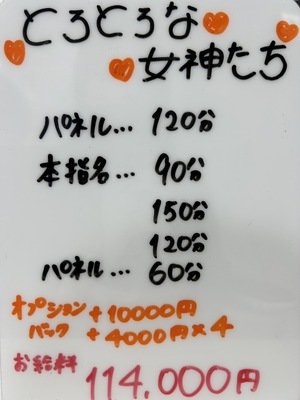 とろとろな
女神たち
パネル... 120分
本指名... 90分
150分
120分
パネル... 60分
オプション +10000円
バック +4000円×4
お給料 114,000円